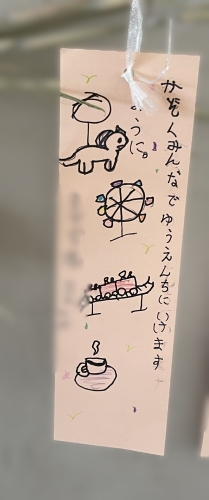 かぞくみんなでゆうえんちにいけます
ように。